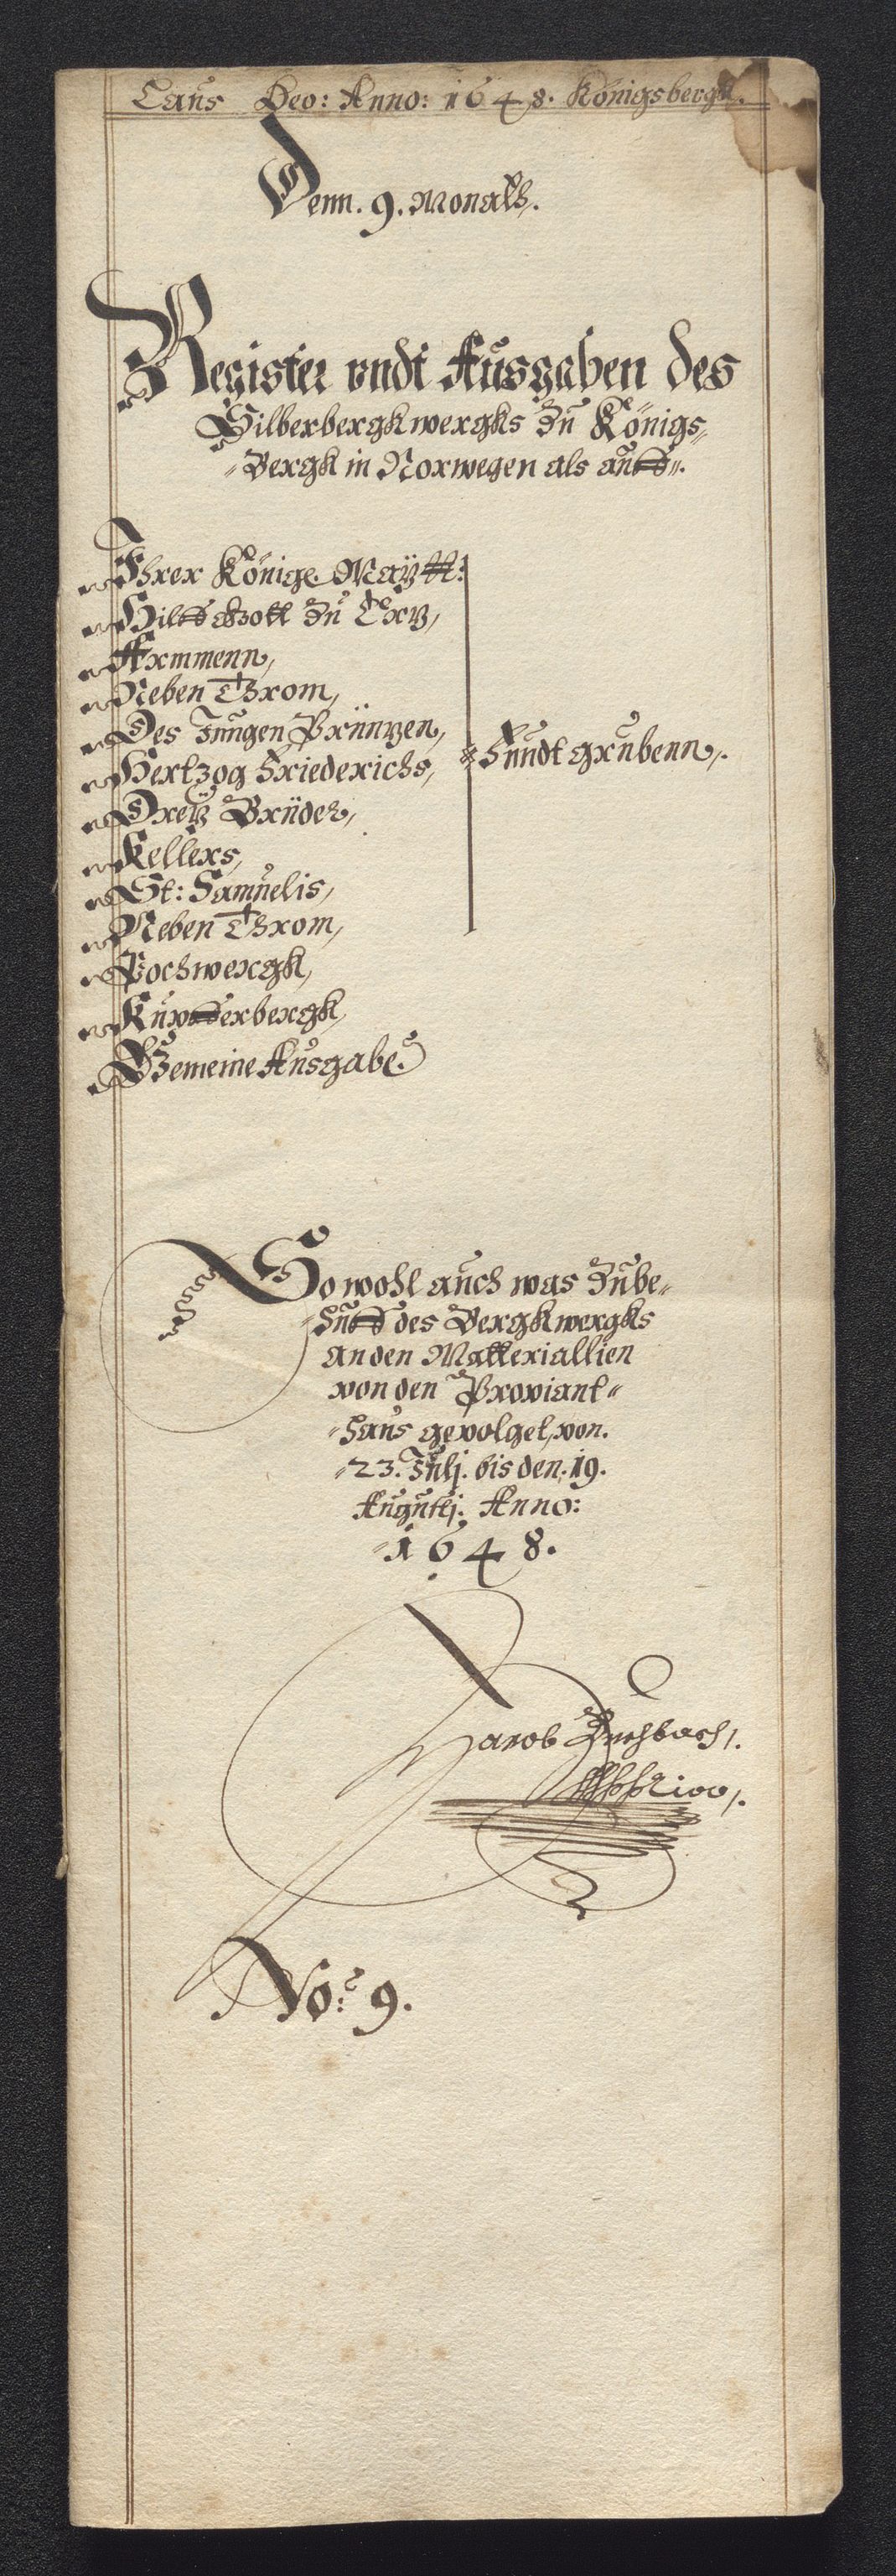 Laus Deo: Anno: 1648. Königsbergk.
Denn. 9. Monath.
Register vndt Ausgaben des
Silberbergkwergks Zu Königs-
Bergk in Norwegen als auff
Ihrer Königl. Maÿtt:
Hilff Gott Zu Ertz,
Armmenn,
Neben Throm,
Des Jungen Printzen,
Hertzog Friederichs,
Dreÿ Brüder,
Kellers,
St: Samuelis,
Neben Throm,
Fundtgrubenn,
Pochwergk,
Kupfferbergk,
Gemeine Ausgabe.
So wohl auch was Zu be-
huff des Bergkwergks
an den Matteriallien
von den Proviant-
haus gevolget, von.
23. Julj. bis den. 19.
Augustj. Anno:
1648.
Jacob
No: 9.